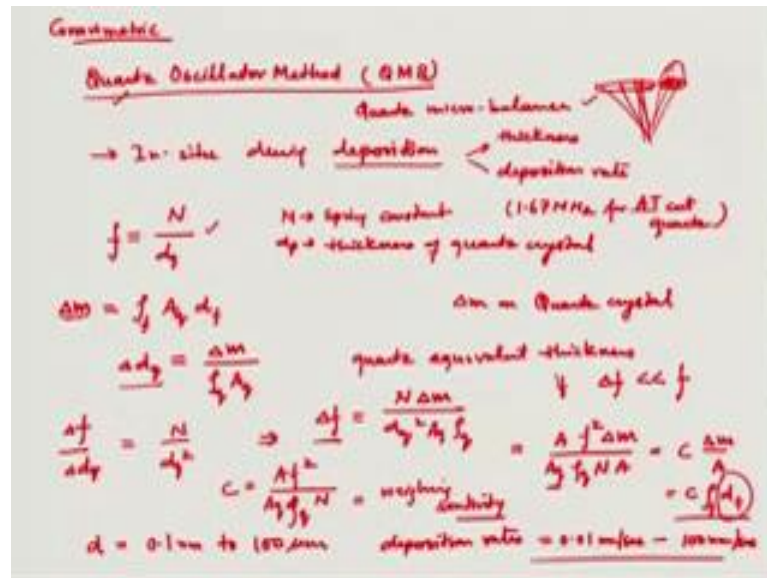 Gravimetric
Quartz Oscillator Method (QMB)
Quartz micro-balance
→ In-situ during deposition thickness
deposition rate
f = N / d_q ✓ N → Spring constant (1.67 MHz for AT cut quartz)
d_q → thickness of quartz crystal
Δm = ρ_f A_q d_f Δm on Quartz crystal
Δd_q = Δm / ρ_q A_q quartz equivalent thickness
if Δf << f
Δf / Δd_q = N / d_q² ⇒ Δf = N Δm / d_q² A_q ρ_q = A f² Δm / A_q ρ_q N A = C Δm / A
C = A f² / A_q ρ_q N = weighing sensitivity = C ρ_f d_f
d = 0.1 nm to 100 μm deposition rates = 0.01 nm/sec - 100 nm/sec